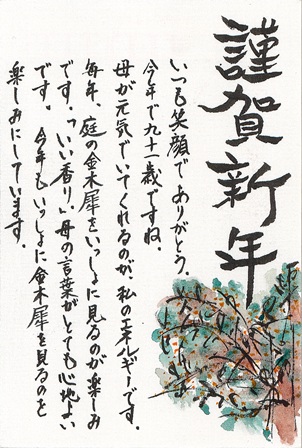 謹賀新年
いつも笑顔でありがとう。
今年で九十一歳ですね。
母が元気でいてくれるのが、私のエネルギーです。
毎年、庭の金木犀をいっしょに見るのが楽しみ
です。「いい香り」母の言葉がとても心地よい
です。今年もいっしょに金木犀を見るのを
楽しみにしています。